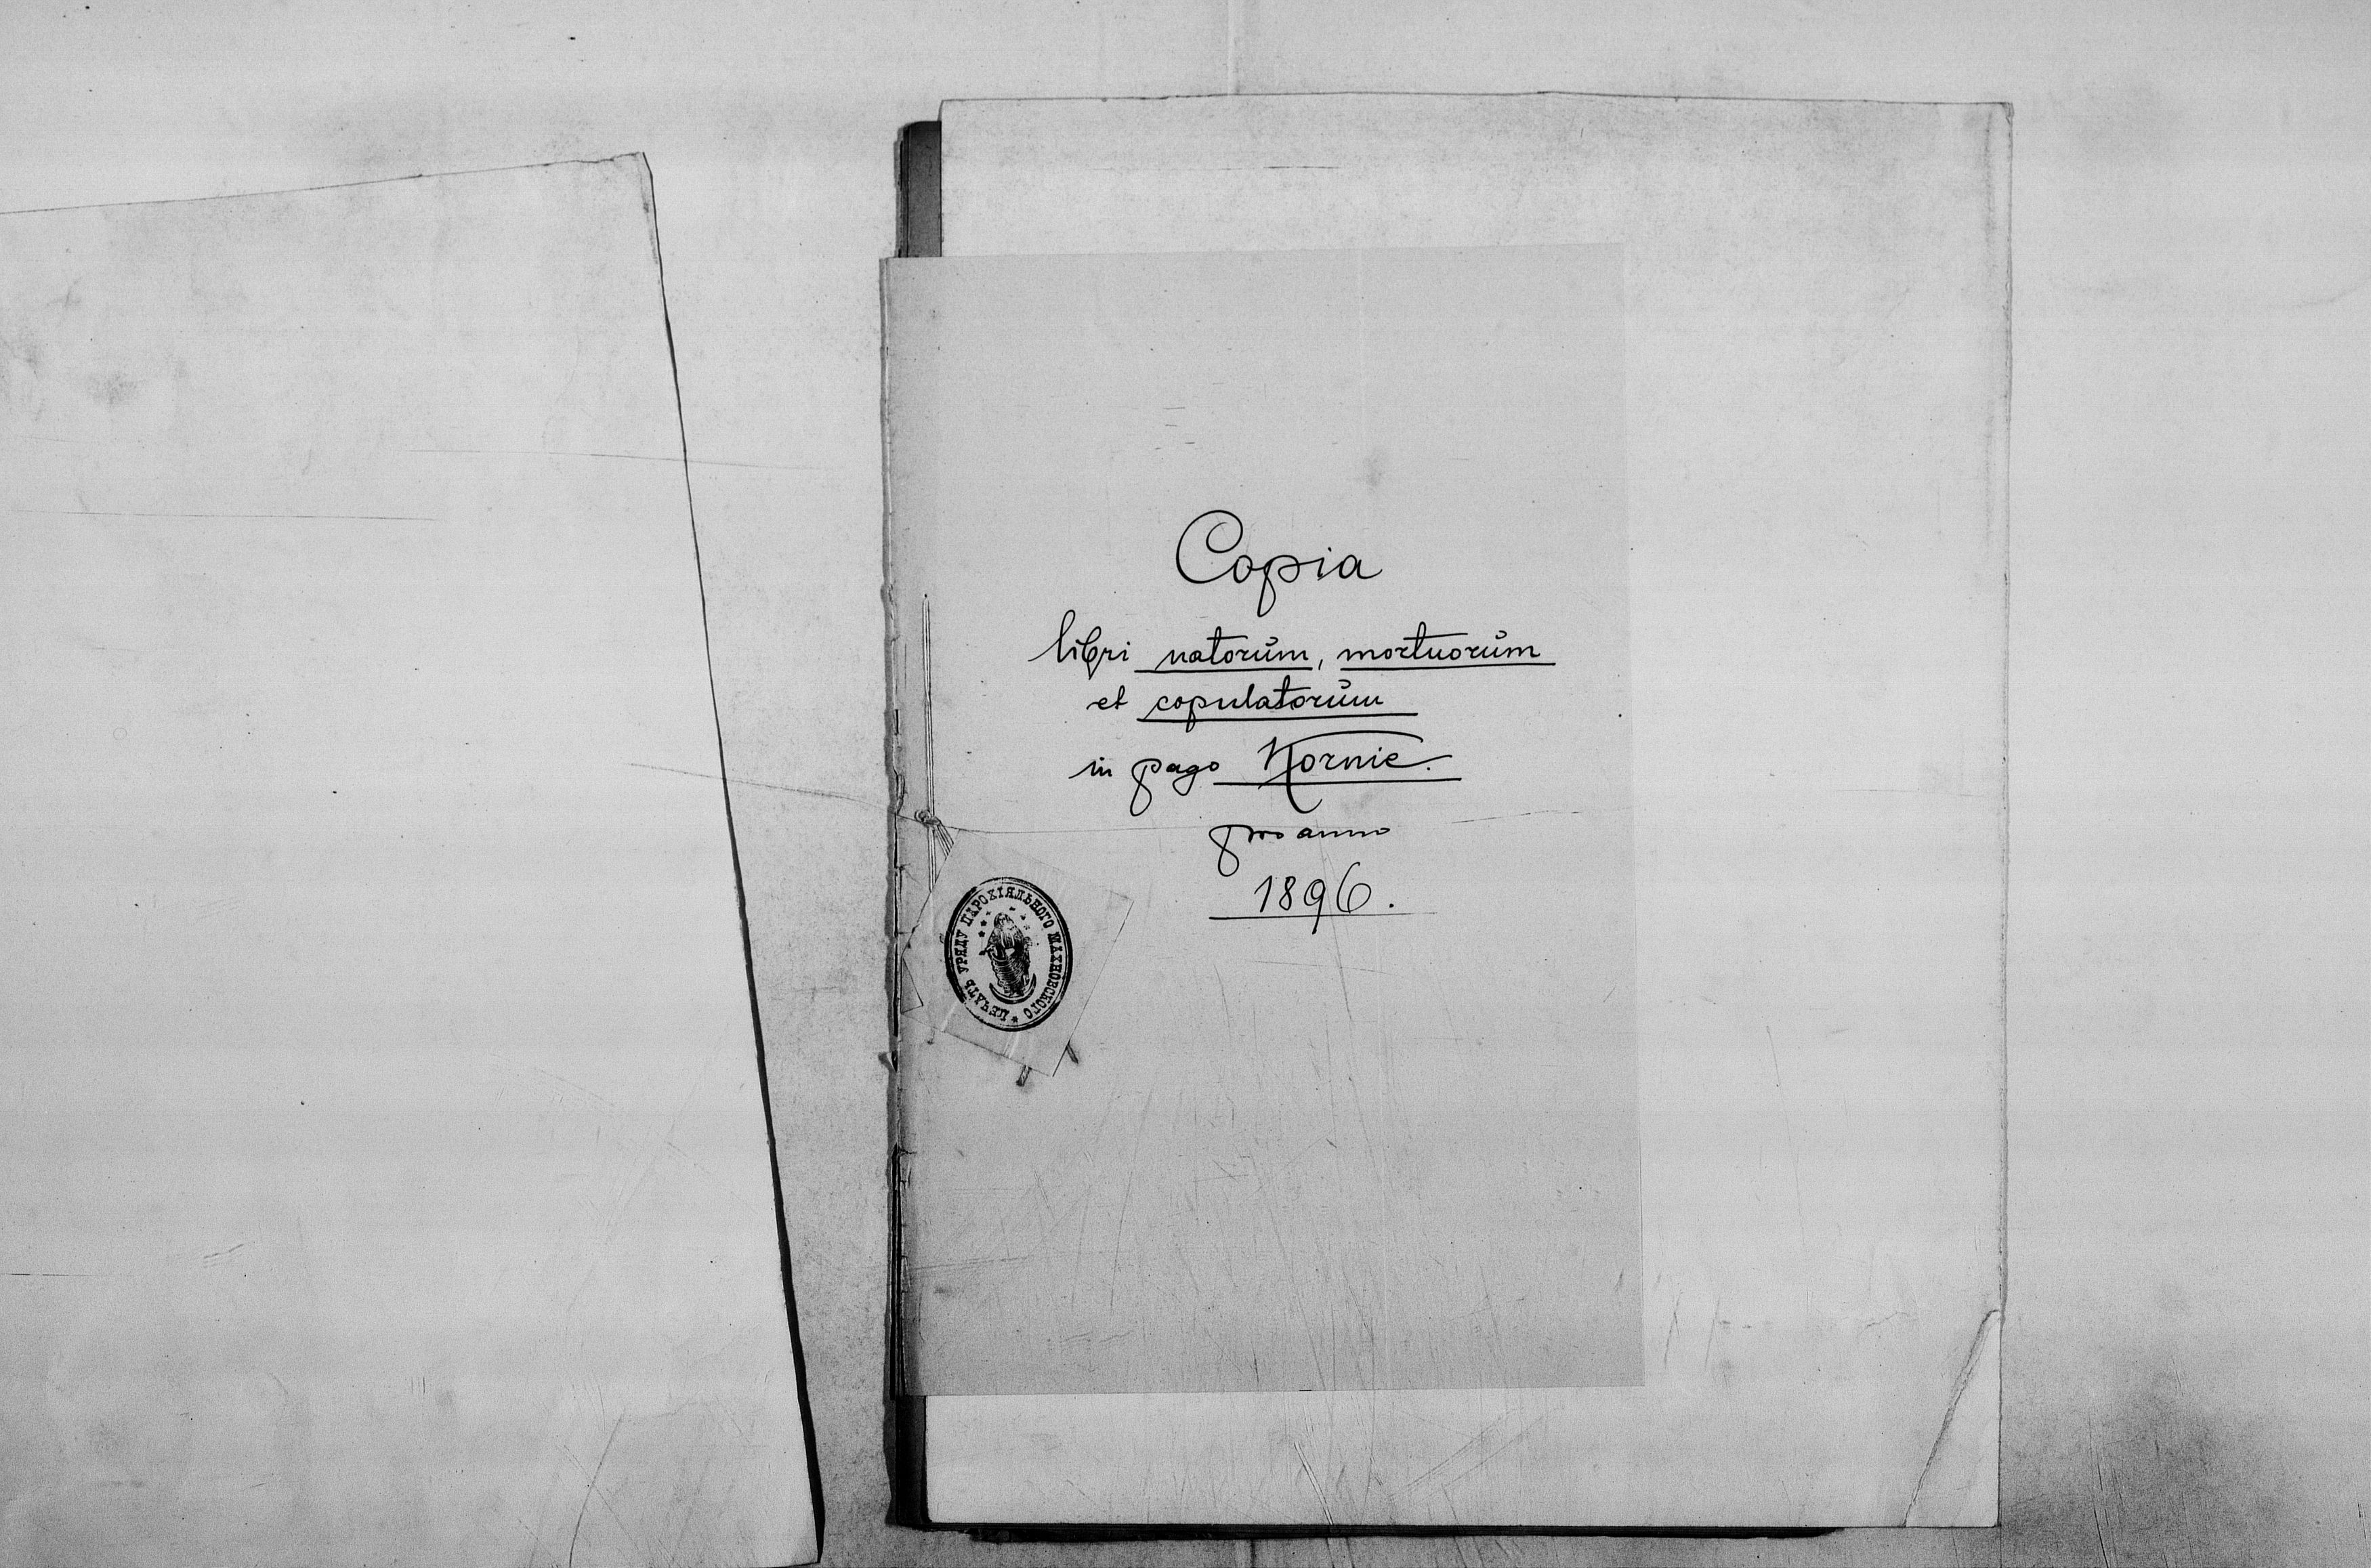 Copia
libri natorum, mortuorum
et copulatorum
in pago Kornie.
pro anno
1896.
ПЕЧАТЬ УРЯДУ ПАРОХІЯЛЬНОГО МАХНОВСКОГО *